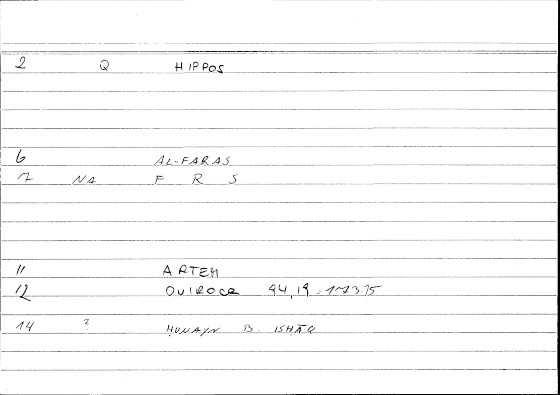 2 Q HIPPOS
6 AL-FARAS
7 NA F R S
11 ARTEM
12 OUIROCR 94,19 = 173.15
14 ? ḤUNAYN B. ISḤĀQ